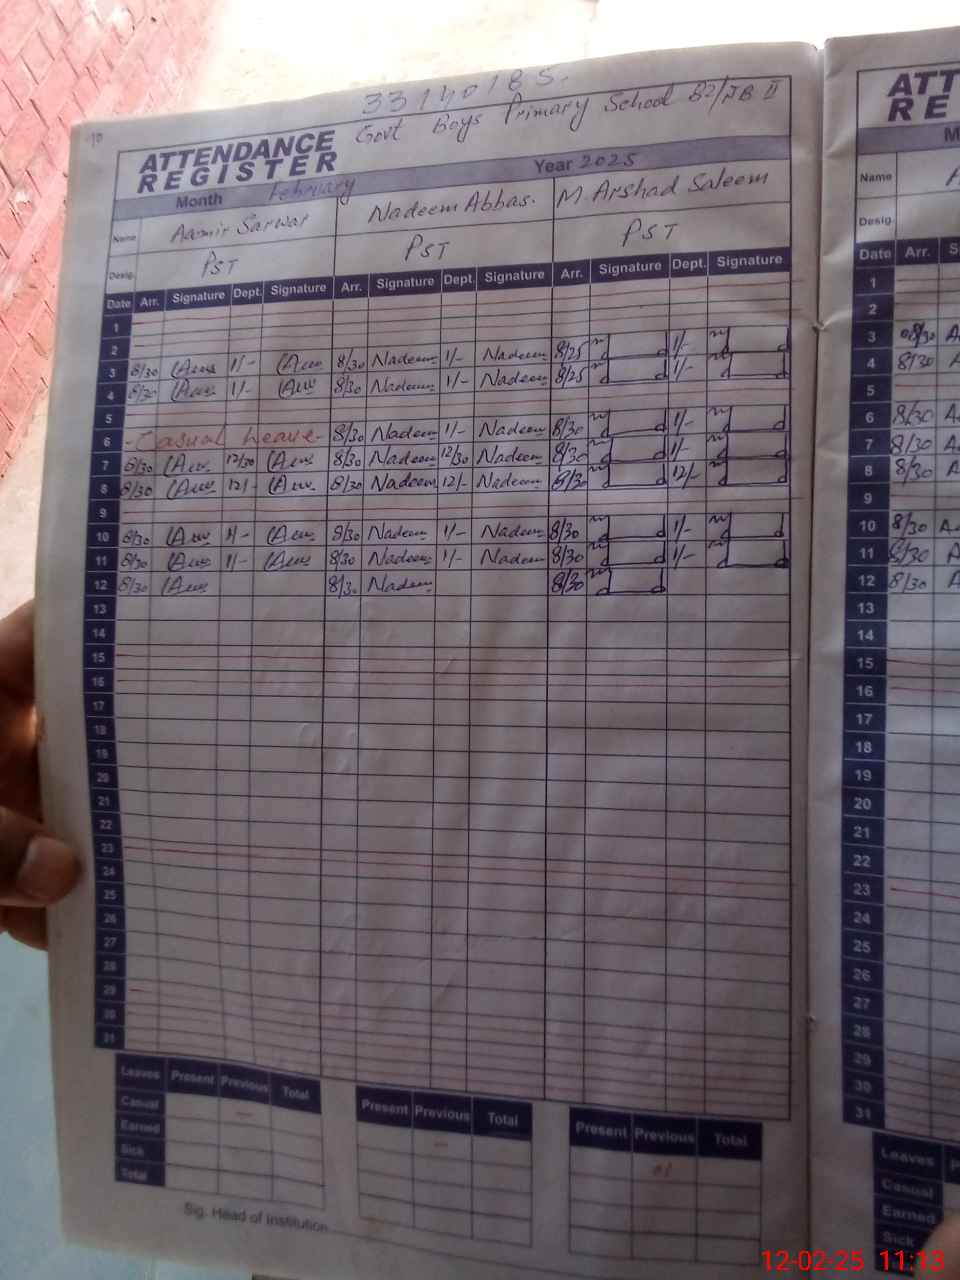 33140185.
Govt Boys Primary School 82/JB II
ATTENDANCE
REGISTER
Month February Year 2025
Name Aamir Sarwar Nadeem Abbas. M. Arshad Saleem
Desig. PST PST PST
Date Arr. Signature Dept. Signature Arr. Signature Dept. Signature Arr. Signature Dept. Signature
1
2
3 8/30 1/- 8/30 Nadeem 1/- Nadeem 8/25 1/-
4 8/30 1/- 8/30 Nadeem 1/- Nadeem 8/25 1/-
5
6 -Casual Leave- 8/30 Nadeem 1/- Nadeem 8/30 1/-
7 8/30 12/30 8/30 Nadeem 12/30 Nadeem 8/30 1/-
8 8/30 12/- 8/30 Nadeem 12/- Nadeem 8/30 12/-
9
10 8/30 1/- 8/30 Nadeem 1/- Nadeem 8/30 1/-
11 8/30 1/- 8/30 Nadeem 1/- Nadeem 8/30 1/-
12 8/30 8/30 Nadeem 8/30
13
14
15
16
17
18
19
20
21
22
23
24
25
26
27
28
29
30
31
Leaves Present Previous Total Present Previous Total Present Previous Total
Casual - - 01
Earned
Sick
Total
Sig. Head of Institution
ATT
RE
M
Name
Desig.
Date Arr. S
1
2
3 08/30 A
4 8/30 A
5
6 8/30 A
7 8/30 A
8 8/30 A
9
10 8/30 A
11 8/30 A
12 8/30 A
13
14
15
16
17
18
19
20
21
22
23
24
25
26
27
28
29
30
31
Leaves P
Casual
Earned
Sick
12-02-25 11:13